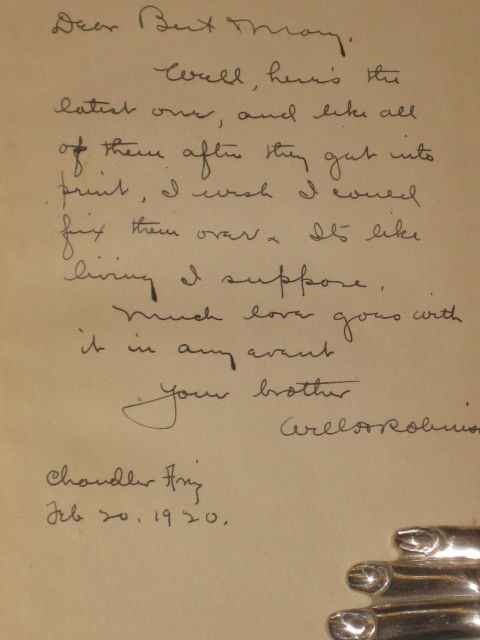 Dear Bert & Mary.
Well, here's the
latest one, and like all
of them after they get into
print, I wish I could
fix them over. It's like
living I suppose.
Much love goes with
it in any event
Your brother
Will H Robinson
Chandler Ariz
Feb 20. 1920.